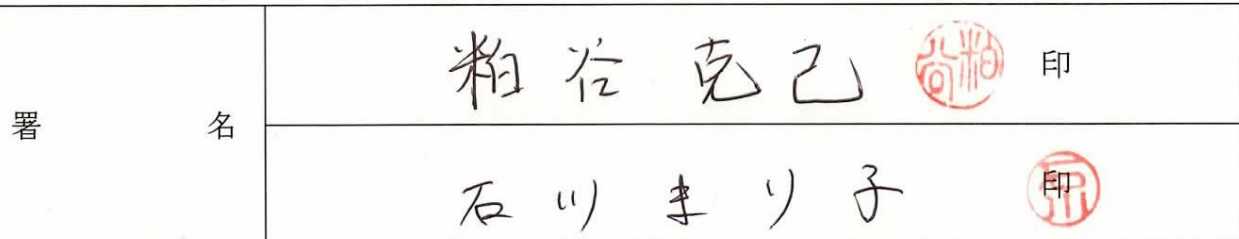 署名
粕谷克己 印
石川まり子 印